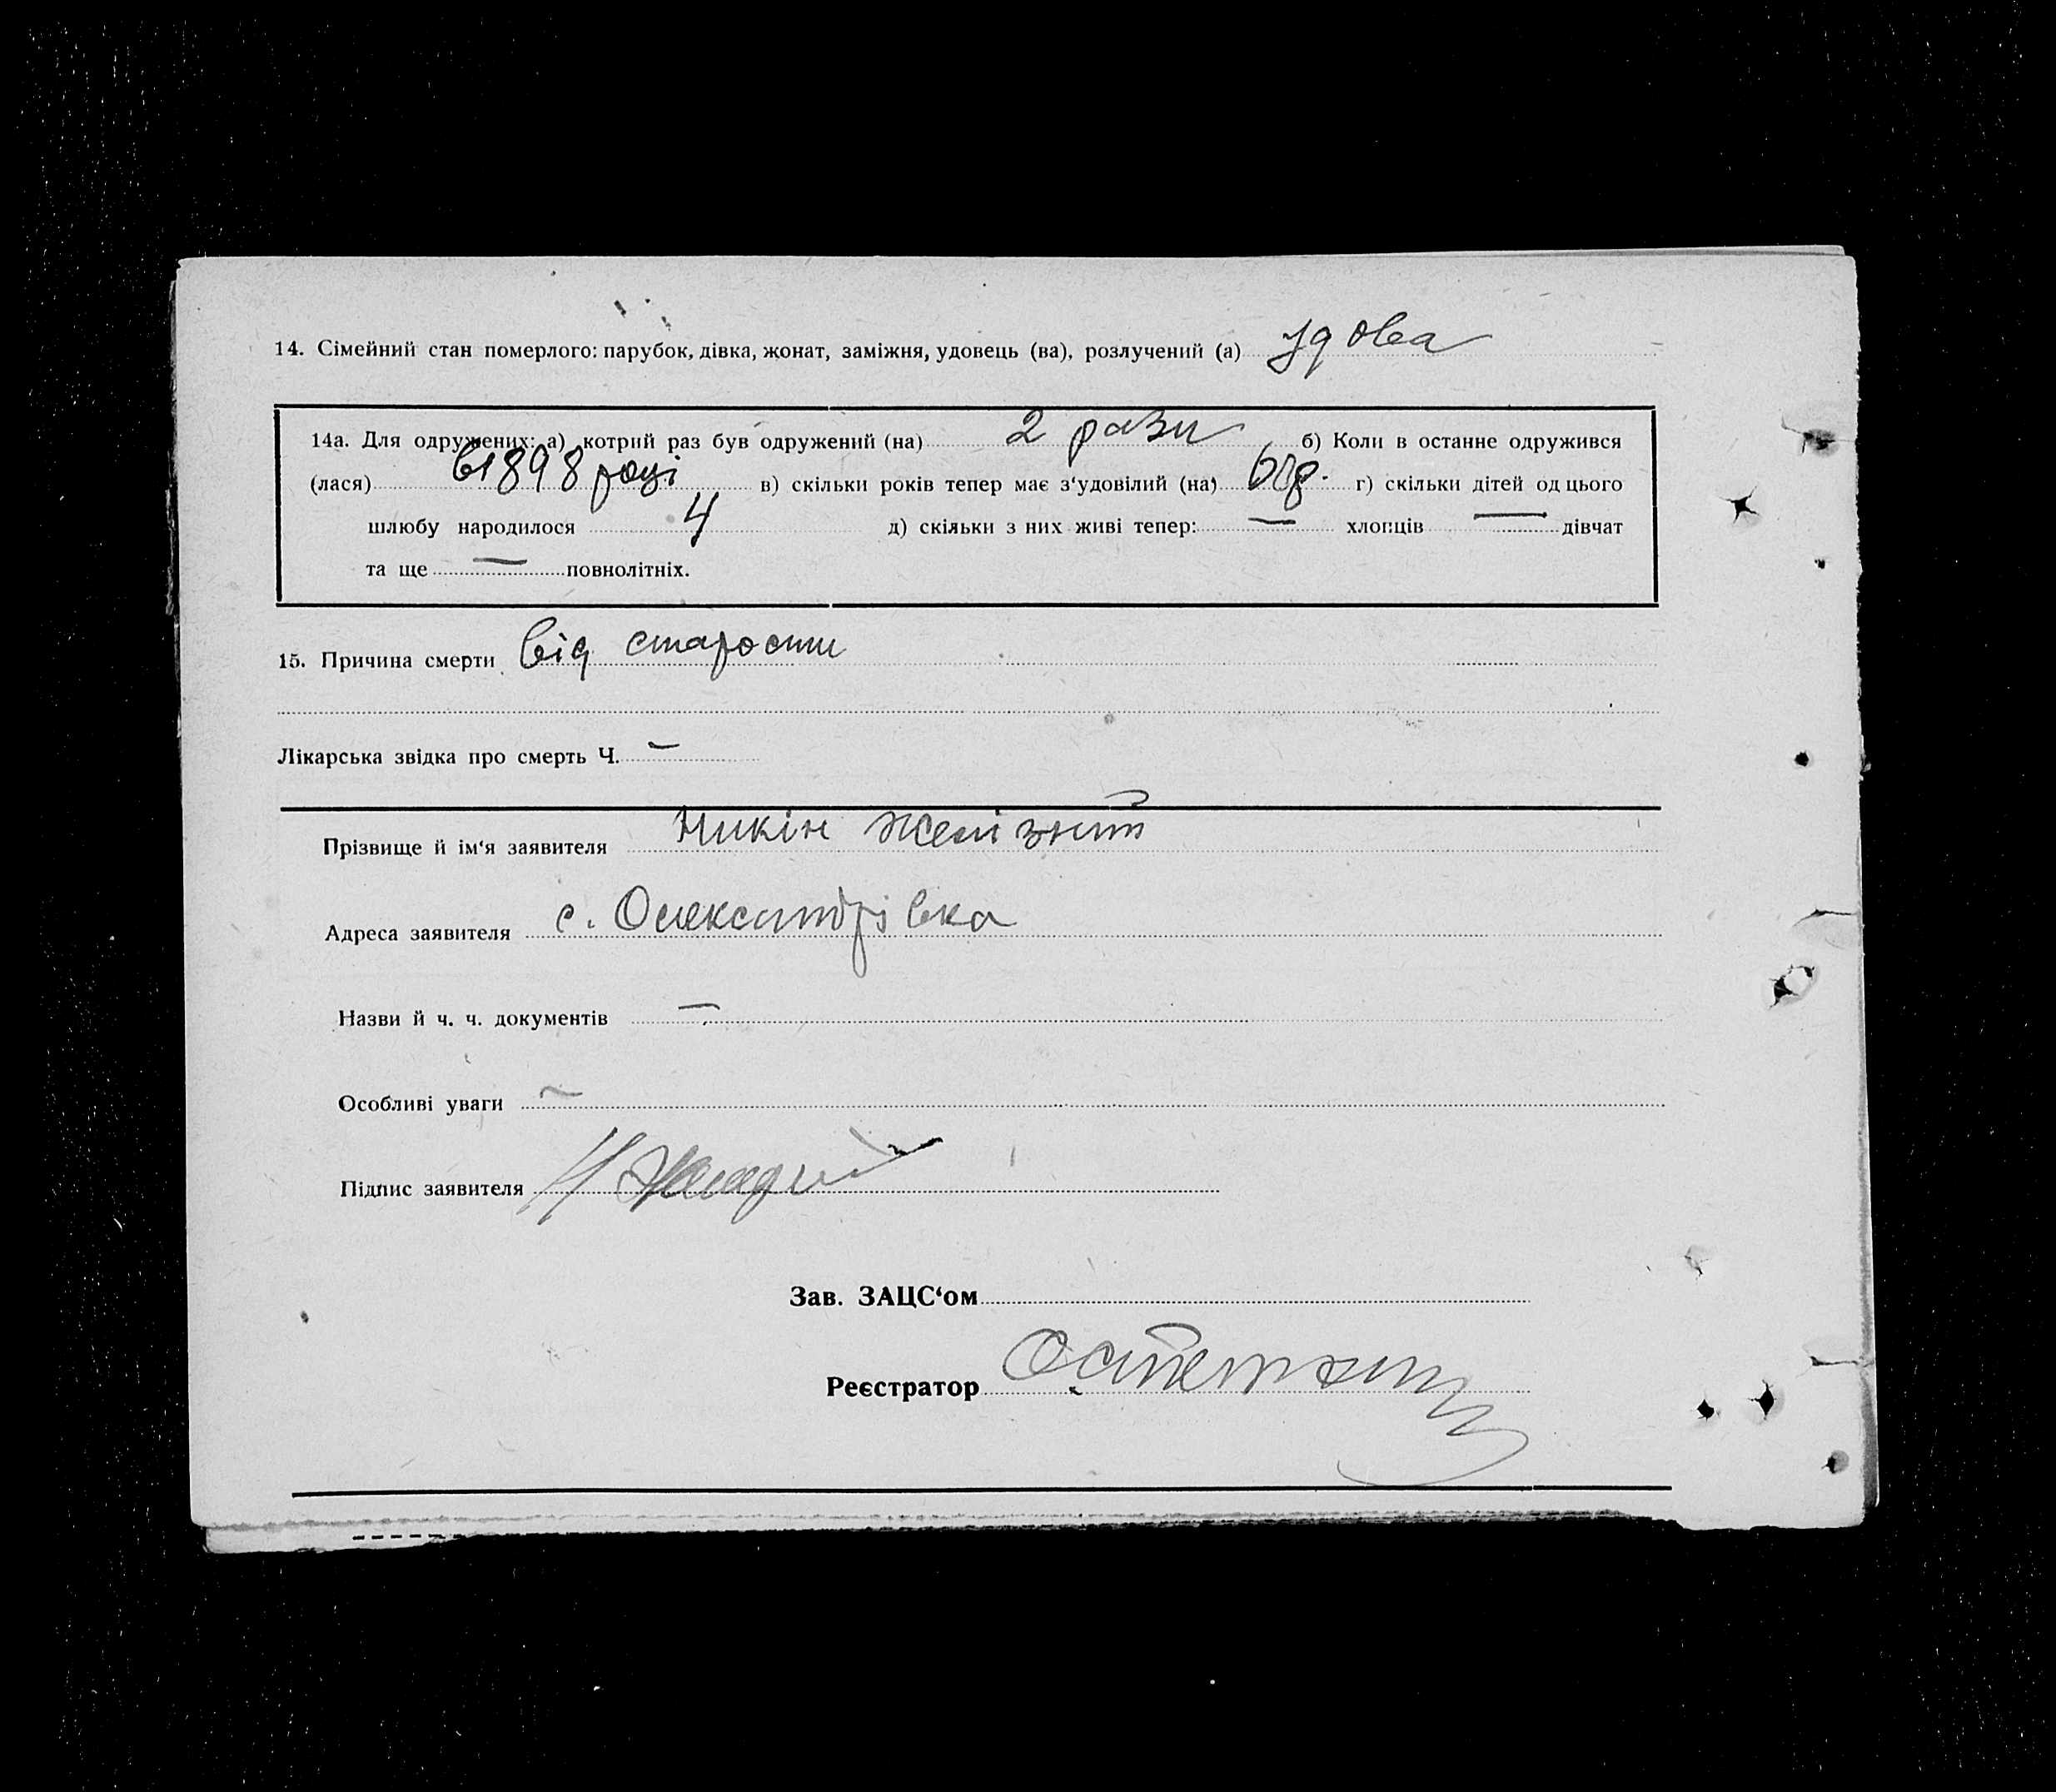 14. Сімейний стан померлого: парубок, дівка, жонат, заміжня, удовець (ва), розлучений (а) удова
14а. Для одружених: а) котрий раз був одружений (на) 2 рази б) Коли в останне одружився
(лася) в 1898 році в) скільки років тепер має з'удовілий (на) г) скільки дітей од цього
шлюбу народилося 4 д) скільки з них живі тепер: — хлопців — дівчат
та ще — повнолітніх.
15. Причина смерти від старости
Лікарська звідка про смерть Ч. —
Прізвище й ім'я заявителя Никін Желізний
Адреса заявителя с. Олександрівка
Назви й ч. ч. документів —
Особливі уваги —
Підпис заявителя
Зав. ЗАЦС'ом
Реєстратор